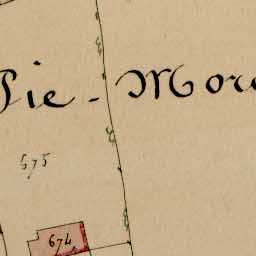 Pie - More
675
674